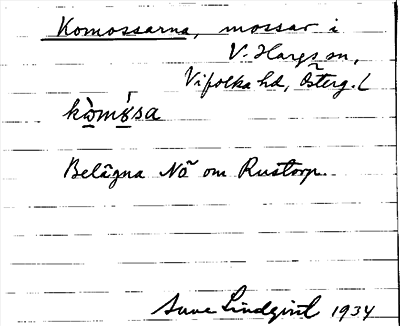 Komossarna, mossar i
V. Hargs sn,
Vifolka hd, Österg. l
kò̱mó̱sa
Belägna NÖ om Rustorp.
Sune Lindqvist 1934